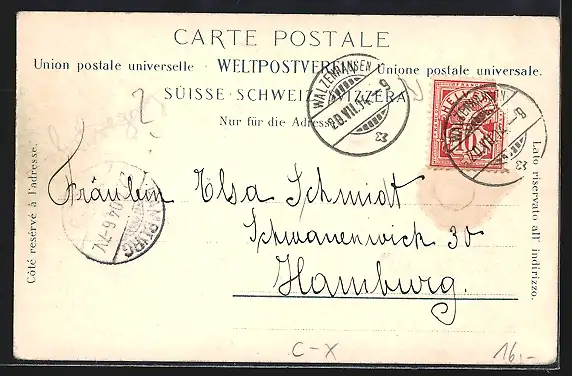 CARTE POSTALE
Union postale universelle · WELTPOSTVEREIN · Unione postale universale.
SUISSE · SCHWEIZ · SVIZZERA
Nur für die Adresse
Côté reservé à l'adresse.
Lato riservato all' indirizzo.
WALZENHAUSEN
WALZENHAUSEN
HELVETIA
10
HAMBURG
Fräulein Elsa Schmidt
Schwanenwick 30
Hamburg.
C-X
16,-